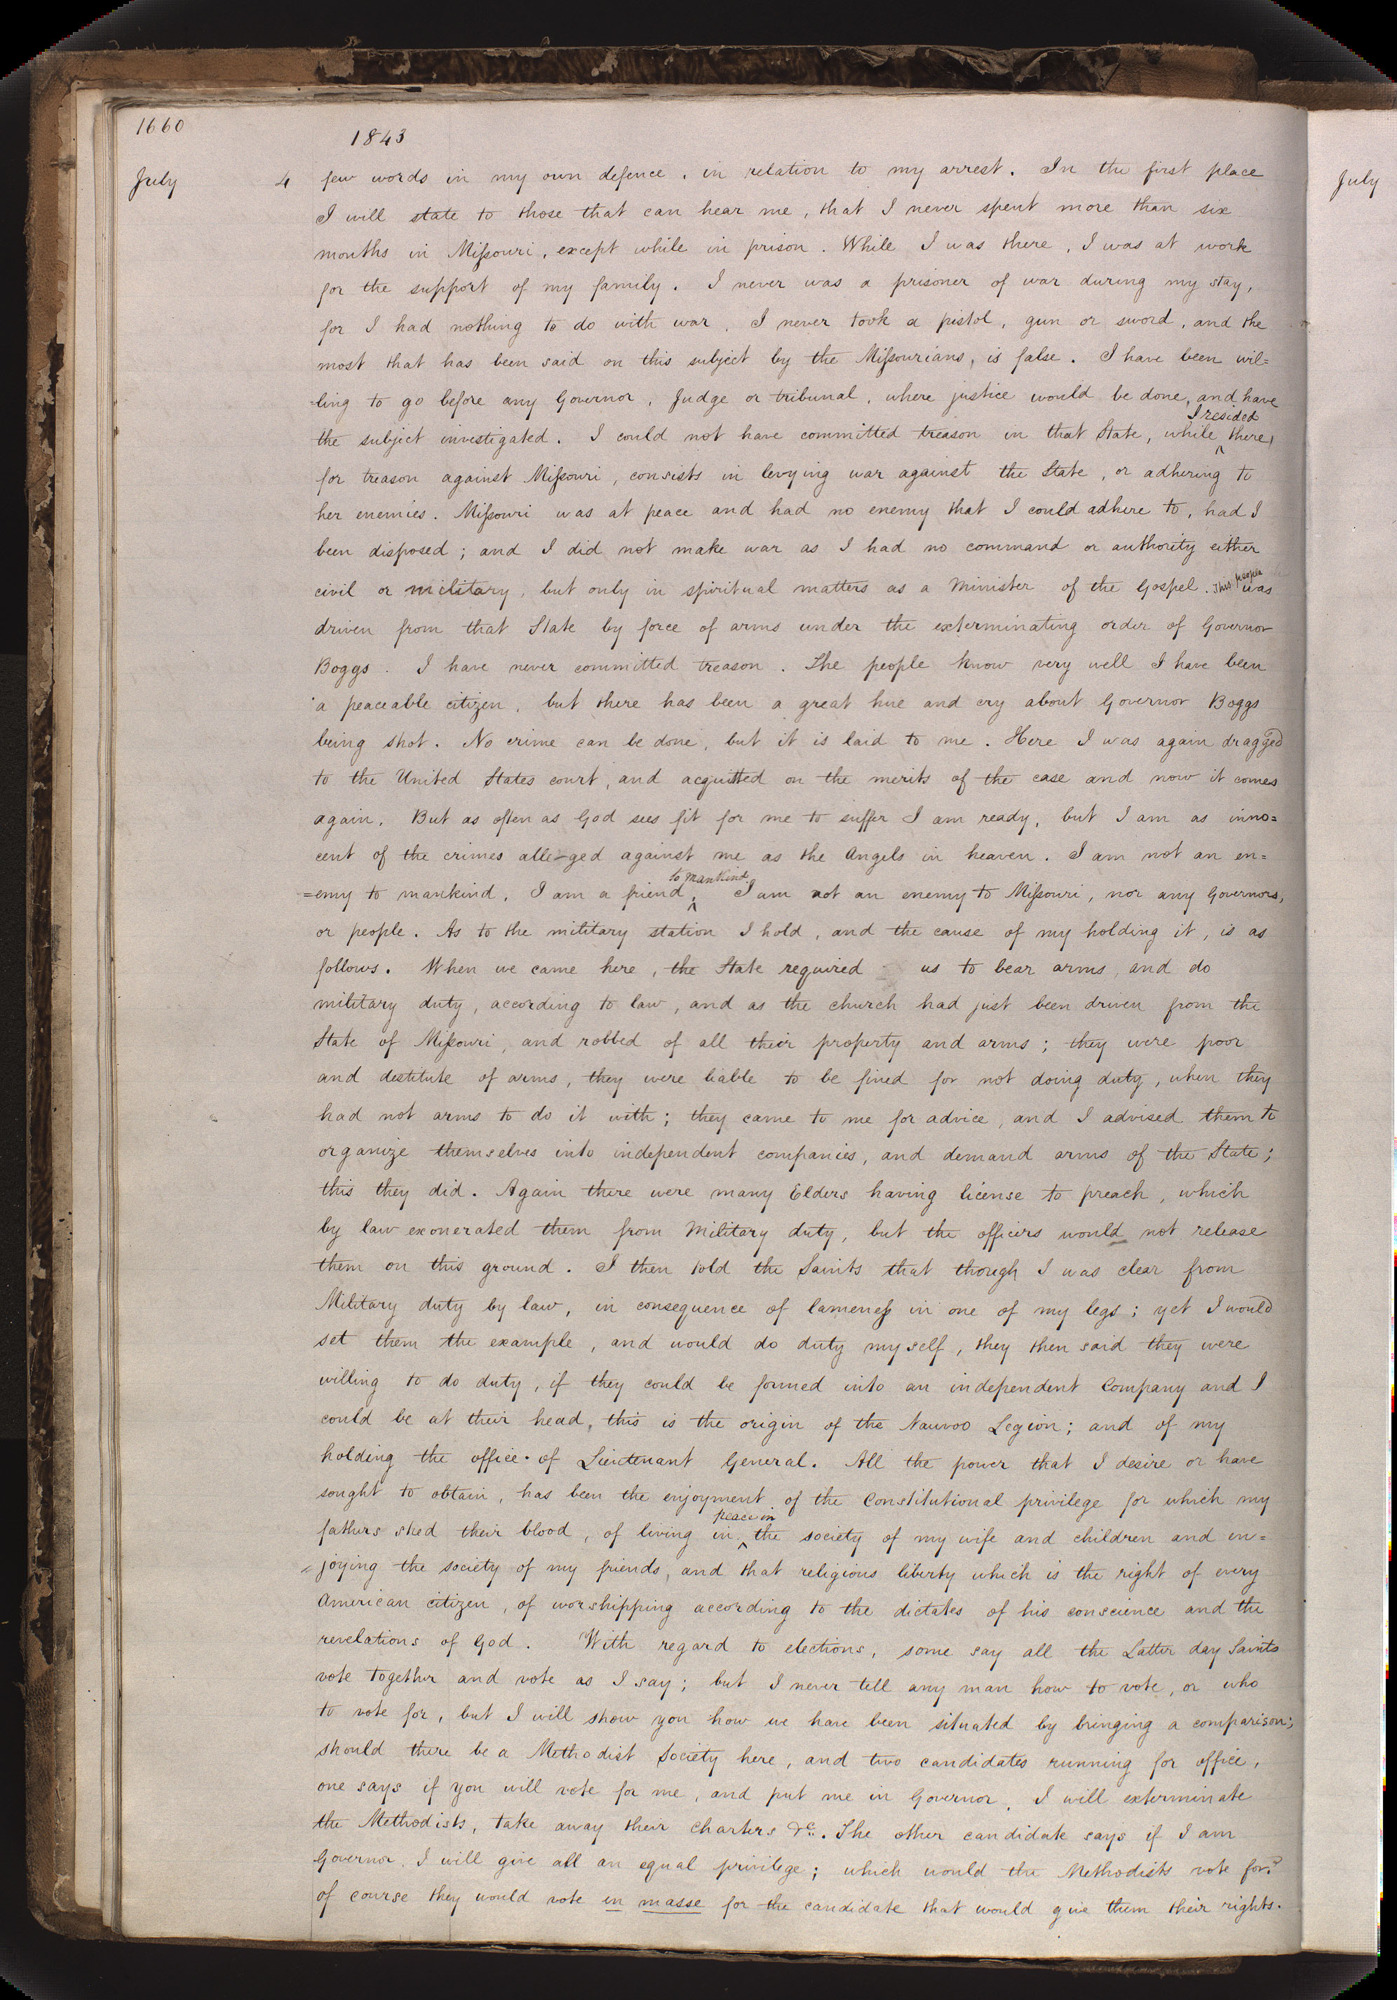 1660
1843
July 4 few words in my own defence, in relation to my arrest. In the first place
July
I will state to those that can hear me, that I never spent more than six
months in Missouri, except while in prison. While I was there, I was at work
for the support of my family. I never was a prisoner of war during my stay,
for I had nothing to do with war. I never took a pistol, gun or sword, and the
most that has been said on this subject by the Missourians, is false. I have been wil=
-ling to go before any Governor, Judge or tribunal, where justice would be done, and have
I resided
the subject investigated. I could not have committed treason in that State, while ^ there,
for treason against Missouri, consists in levying war against the State, or adhering to
her enemies. Missouri was at peace and had no enemy that I could adhere to, had I
been disposed; and I did not make war as I had no command or authority either
civil or military, but only in spiritual matters as a Minister of the Gospel. This people was
driven from that State by force of arms under the exterminating order of Governor
Boggs. I have never committed treason. The people know very well I have been
a peaceable citizen, but there has been a great hue and cry about Governor Boggs
being shot. No crime can be done, but it is laid to me. Here I was again dragged
to the United States court, and acquitted on the merits of the case and now it comes
again. But as often as God sees fit for me to suffer I am ready, but I am as inno=
cent of the crimes alleged against me as the Angels in heaven. I am not an en=
to mankind
=emy to mankind, I am a friend ^, I am not an enemy to Missouri, nor any Governors,
or people. As to the military station I hold, and the cause of my holding it, is as
follows. When we came here, the State required us to bear arms, and do
military duty, according to law, and as the church had just been driven from the
State of Missouri, and robbed of all their property and arms; they were poor
and destitute of arms, they were liable to be fined for not doing duty, when they
had not arms to do it with; they came to me for advice, and I advised them to
organize themselves into independent companies, and demand arms of the State;
this they did. Again there were many Elders having license to preach, which
by law exonerated them from Military duty, but the officers would not release
them on this ground. I then told the Saints that though I was clear from
Military duty by law, in consequence of lameness in one of my legs; yet I would
set them the example, and would do duty myself, they then said they were
willing to do duty, if they could be formed into an independent Company and I
could be at their head, this is the origin of the Nauvoo Legion; and of my
holding the office of Lieutenant General. All the power that I desire or have
sought to obtain, has been the enjoyment of the Constitutional privilege for which my
peace in
fathers shed their blood, of living in ^ the society of my wife and children and en=
=joying the society of my friends, and that religious liberty which is the right of every
American citizen, of worshipping according to the dictates of his conscience and the
revelations of God. With regard to elections, some say all the Latter day Saints
vote together and vote as I say; but I never tell any man how to vote, or who
to vote for, but I will show you how we have been situated by bringing a comparison;
should there be a Methodist Society here, and two candidates running for office,
one says if you will vote for me, and put me in Governor, I will exterminate
the Methodists, take away their charters &c. The other candidate says if I am
Governor, I will give all an equal privilege; which would the Methodists vote for?
of course they would vote in masse for the candidate that would give them their rights.